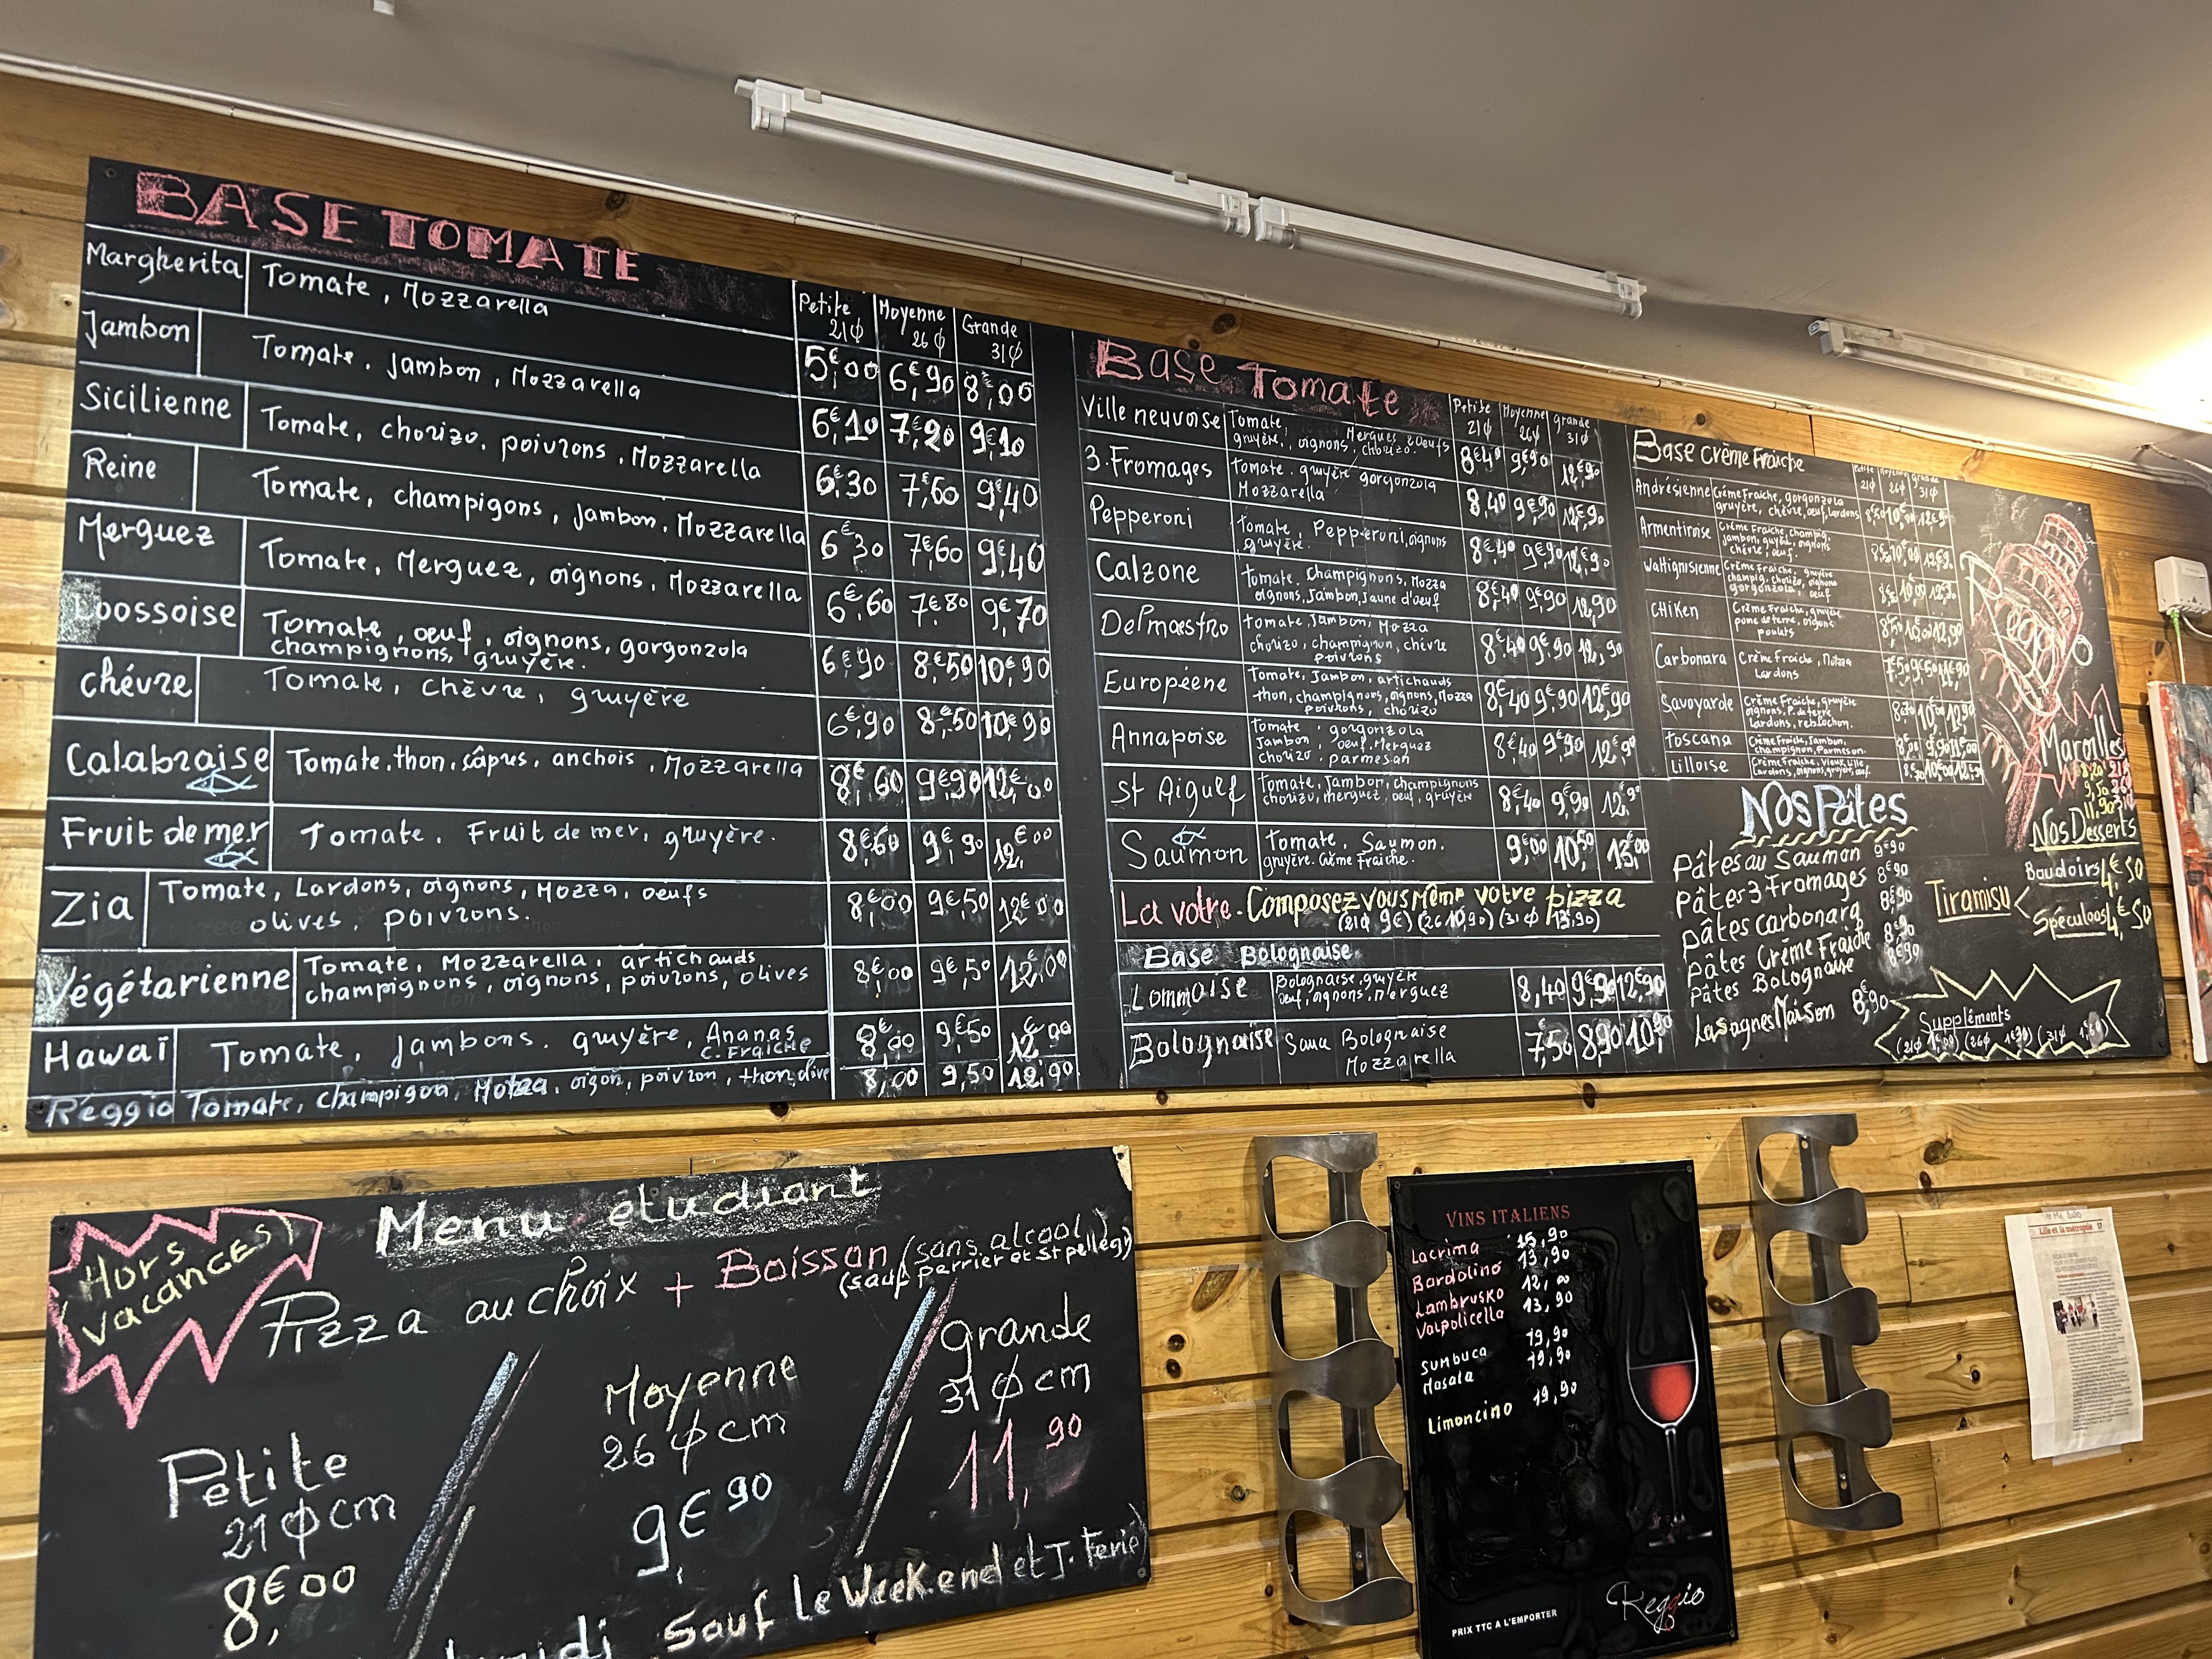 BASE TOMATE
Petite 21φ Moyenne 26φ Grande 31φ
Margherita Tomate, Mozzarella 5€,00 6€,90 8€,00
Jambon Tomate, Jambon, Mozzarella 6€,10 7€,20 9€,10
Sicilienne Tomate, chorizo, poivrons, Mozzarella 6€,30 7€,60 9€,40
Reine Tomate, champigons, jambon, Mozzarella 6€,30 7€,60 9€,40
Merguez Tomate, Merguez, oignons, Mozzarella 6€,60 7€,80 9€,70
Loossoise Tomate, oeuf, oignons, gorgonzola
champignons, gruyère. 6€,90 8€,50 10€,90
chévre Tomate, chèvre, gruyère 6€,90 8€,50 10€,90
Calabraise Tomate, thon, câpres, anchois, Mozzarella 8€,60 9€,90 12€,00
Fruit de mer Tomate. Fruit de mer, gruyère. 8€,60 9€,90 12€,00
Zia Tomate, Lardons, oignons, Mozza, oeufs
olives, poivrons. 8€,00 9€,50 12€,00
Végétarienne Tomate, Mozzarella, artichauds
champignons, oignons, poivrons, olives 8€,00 9€,50 12€,00
Hawaï Tomate, jambons. gruyère, Ananas
C. FRAICHE 8€,00 9€,50
Réggio Tomate, champigon, Mozza, oigon, poivron, thon, olive 8,00 9,50
Base Tomate
Petite 21φ Moyenne 26φ grande 31φ
Ville neuvoise Tomate, Mergues 2 Oeufs
gruyère, oignons, chorizo. 8€40 9€90 12€90
3.Fromages Tomate. gruyère gorgonzola
Mozzarella 8,40 9€90 12€90
Pepperoni Tomate, Pepperoni, oignons
gruyère. 8€40 9€90 12€90
Calzone Tomate. champignons, Mozza
oignons, Jambon, Jaune d'oeuf 8€,40 9€90 12,90
Del'maestro Tomate, Jambon, Mozza
chorizo, champignon, chèvre
poivrons 8€40 9€90 12,90
Européene Tomate, Jambon, artichauds
thon, champignons, oignons, Mozza
poivrons, chorizo 8€,40 9€90 12€,90
Annapoise Tomate, gorgonzola
Jambon, oeuf, Merguez
chorizo, parmesan 8€40 9€90 12€90
St Aigulf Tomate, Jambon, champignons
chorizo, merguez, oeuf, gruyère 8€,40 9€90 12,90
Saumon Tomate, Saumon.
gruyère. Crème Fraiche. 9€00 10€50 13€00
La votre. Composez vous même votre pizza
(21φ 9€) (26 10,90) (31φ 13,90)
Base Bolognaise
Lommoise Bolognaise, gruyère
Oeuf, oignons, merguez 8,40 9€90 12€90
Bolognaise Sauce Bolognaise
Mozzarella 7€,50 8,90
Base Crème Fraiche
Petite 21φ Moyenne 26φ grande 31φ
Andrésienne Crème Fraiche, gorgonzola
gruyère, chèvre, oeuf, lardons
Armentiroise Crème Fraiche, champig,
jambon, gruyère, oignons
chèvre, oeuf.
Wattignisienne Crème Fraiche, gruyère
champig, chorizo, oignons
gorgonzola, oeuf
CHIKEN Crème Fraiche, gruyère
pome de terre, oignons
poulets
Carbonara Crème Fraiche, Mozza
Lardons
Savoyarde Crème Fraiche, gruyère
oignons, P. de terre
Lardons, reblochon.
Toscana Crème Fraiche, Jambon,
champignon, Parmesan.
Lilloise Crème Fraiche, Vieux Lille
Lardons, oignons, gruyère, oeuf.
Reggio
Marolles
Nos Pâtes
Pâtes au saumon 9€90
Pâtes 3 Fromages 8€90
Pâtes carbonara 8€90
Pâtes Crème Fraiche 8€90
Pâtes Bolognaise 8€90
Lasagnes Maison 8€,90
Nos Desserts
Tiramisu
Boudoirs 4€,50
Spéculoos 4€,50
Suppléments
(21φ 1€,00) (26φ 1€30) (31φ 1€60)
Hors
vacances
Menu étudiant
Pizza au choix + Boisson (sans alcool)
(sauf perrier et St pellegr)
Petite
21φcm
8€,00
Moyenne
26φcm
9€,90
grande
31φcm
11,90
Sauf le Week.end et J. Ferié
VINS ITALIENS
Lacrima 15,90
Bardolino 13,90
Lambrusko 12,00
Valpolicella 13,90
Sumbuca 19,90
Masala 19,90
Limoncino 19,90
PRIX TTC A L'EMPORTER
Reggio
Lille et la métropole